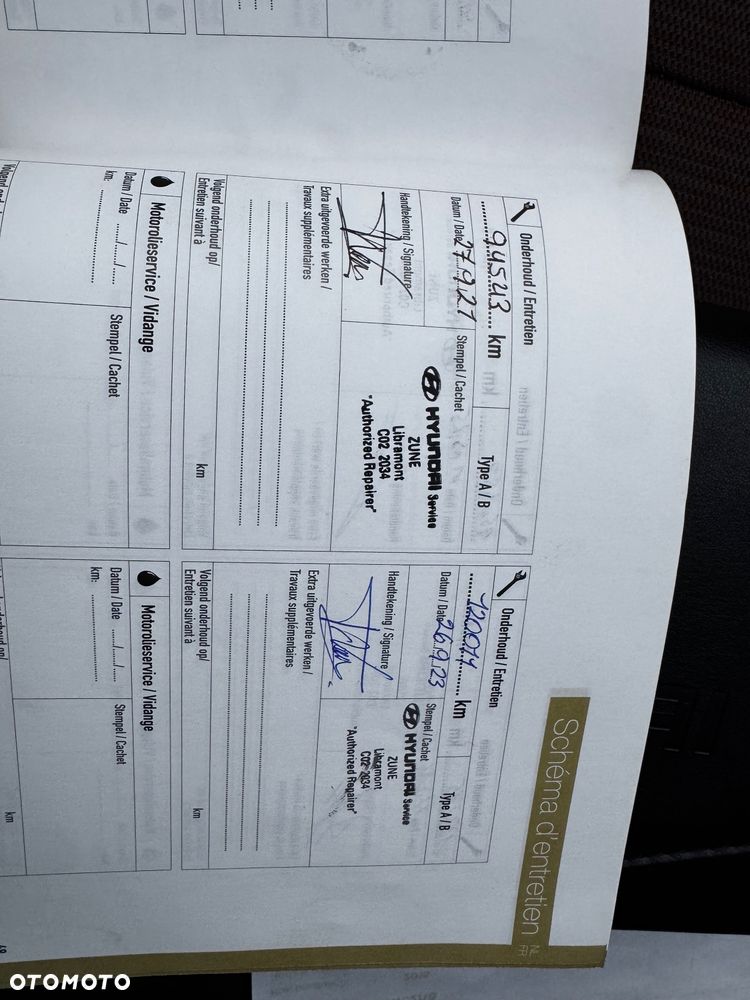 Schéma d'entretien
NL
FR
Onderhoud / Entretien
94543 km
Type A / B
Datum / Date 27.9.21
Stempel / Cachet
HYUNDAI Service
ZUNE
Libramont
C02 2034
"Authorized Repairer"
Handtekening / Signature
Extra uitgevoerde werken /
Travaux supplémentaires
Volgend onderhoud op/
Entretien suivant à
km
Motorolieservice / Vidange
Datum / Date ...../...../.....
km: ........................
Stempel / Cachet
Onderhoud / Entretien
km
Type A / B
Datum / Date 26.9.23
Stempel / Cachet
HYUNDAI Service
ZUNE
Libramont
C02 2034
"Authorized Repairer"
Handtekening / Signature
Extra uitgevoerde werken /
Travaux supplémentaires
Volgend onderhoud op/
Entretien suivant à
km
Motorolieservice / Vidange
Datum / Date ...../...../.....
km: ........................
Stempel / Cachet
km
OTOMOTO